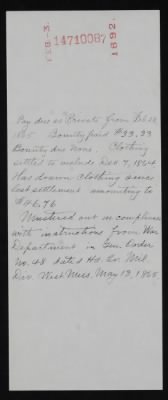 FEB-3. 14710087 1892.
Pay due as Private from Feb 28
1865 Bounty paid $33.33
Bounty due None. Clothing
settled to include Dec 7, 1864
Has drawn clothing since
last settlement amounting to
$46.76
Mustered out in compliance
with instructions from War
Department in Gen. Order
No. 48 dated Hd. Qr. Mil.
Div. West Miss. May 13, 1865